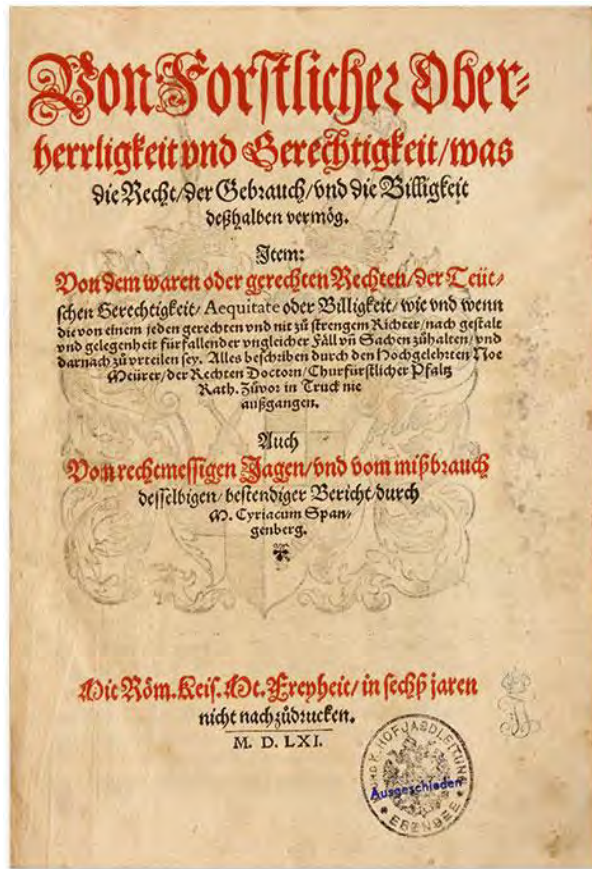 Von Forstlicher Ober⸗
herrligkeit vnd Gerechtigkeit/ was
die Recht/ der Gebrauch/ vnd die Billigkeit
deßhalben vermög.
Item:
Von dem waren oder gerechten Rechten/ der Teüt⸗
schen Gerechtigkeit/ Aequitate oder Billigkeit/ wie vnd wenn
die von einem jeden gerechten vnd nit zů strengem Richter/ nach gestalt
vnd gelegenheit fürfallender vngleicher Fäll vñ Sachen zůhalten/ vnd
darnach zů vrteilen sey. Alles beschriben durch den Hochgelehrten Noe
Meürer/ der Rechten Doctorn/ Churfürstlicher Pfaltz
Rath. Zůvor in Truck nie
außgangen.
Auch
Vom rechtmessigen Jagen/ vnd vom mißbrauch
desselbigen/ bestendiger Bericht/ durch
M. Cyriacum Span⸗
genberg.
Mit Röm. Keis. Mt. Freyheit/ in sechß jaren
nicht nachzůdrucken.
M. D. LXI.
UND K. HOFJAGDLEITUNG
Ausgeschieden
* EBENSEE *